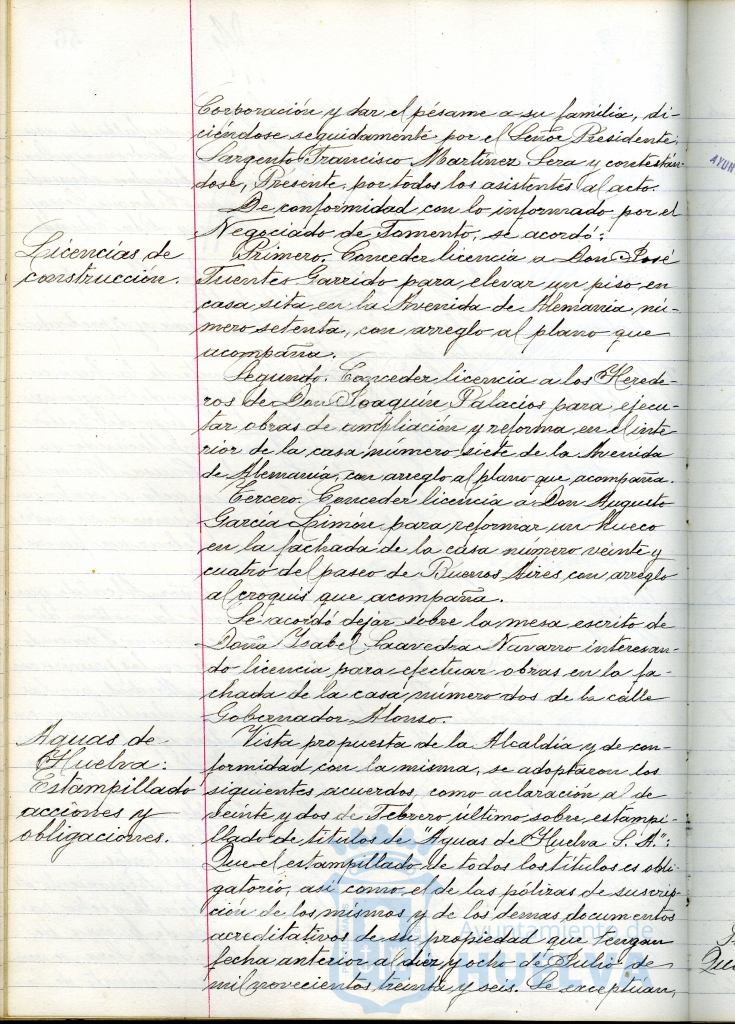 Corporación y dar el pésame a su familia, di-
ciéndose seguidamente por el Señor Presidente:
Sargento Francisco Martínez Sera y contestán-
dose, Presente, por todos los asistentes al acto.
De conformidad con lo informado por el
Negociado de Fomento, se acordó:
Licencias de
construcción.
Primero. Conceder licencia a Don José
Fuentes Garrido para elevar un piso en
casa sita en la Avenida de Alemania nú-
mero setenta, con arreglo al plano que
acompaña.
Segundo. Conceder licencia a los Herede-
ros de Don Joaquín Palacios para ejecu-
tar obras de ampliación y reforma en el inte-
rior de la casa número siete de la Avenida
de Alemania, con arreglo al plano que acompaña.
Tercero. Conceder licencia a Don Augusto
García Limón para reformar un hueco
en la fachada de la casa número veinte y
cuatro del paseo de Buenos Aires con arreglo
al croquis que acompaña.
Se acordó dejar sobre la mesa escrito de
Doña Ysabel Saavedra Navarro interesan-
do licencia para efectuar obras en la fa-
chada de la casa número dos de la calle
Gobernador Alonso.
Aguas de
Huelva:
Estampillado
acciones y
obligaciones.
Vista propuesta de la Alcaldía y de con-
formidad con la misma, se adoptaron los
siguientes acuerdos, como aclaración al de
veinte y dos de Febrero último sobre estampi-
llado de títulos de "Aguas de Huelva S. A.":
Que el estampillado de todos los títulos es obli-
gatorio, así como el de las pólizas de suscrip-
ción de los mismos y de los demas documentos
acreditativos de su propiedad que tengan
fecha anterior al diez y ocho de Julio de
mil novecientos treinta y seis. Se exceptuan,
Ayuntamiento de
HUELVA
AYUN
Que